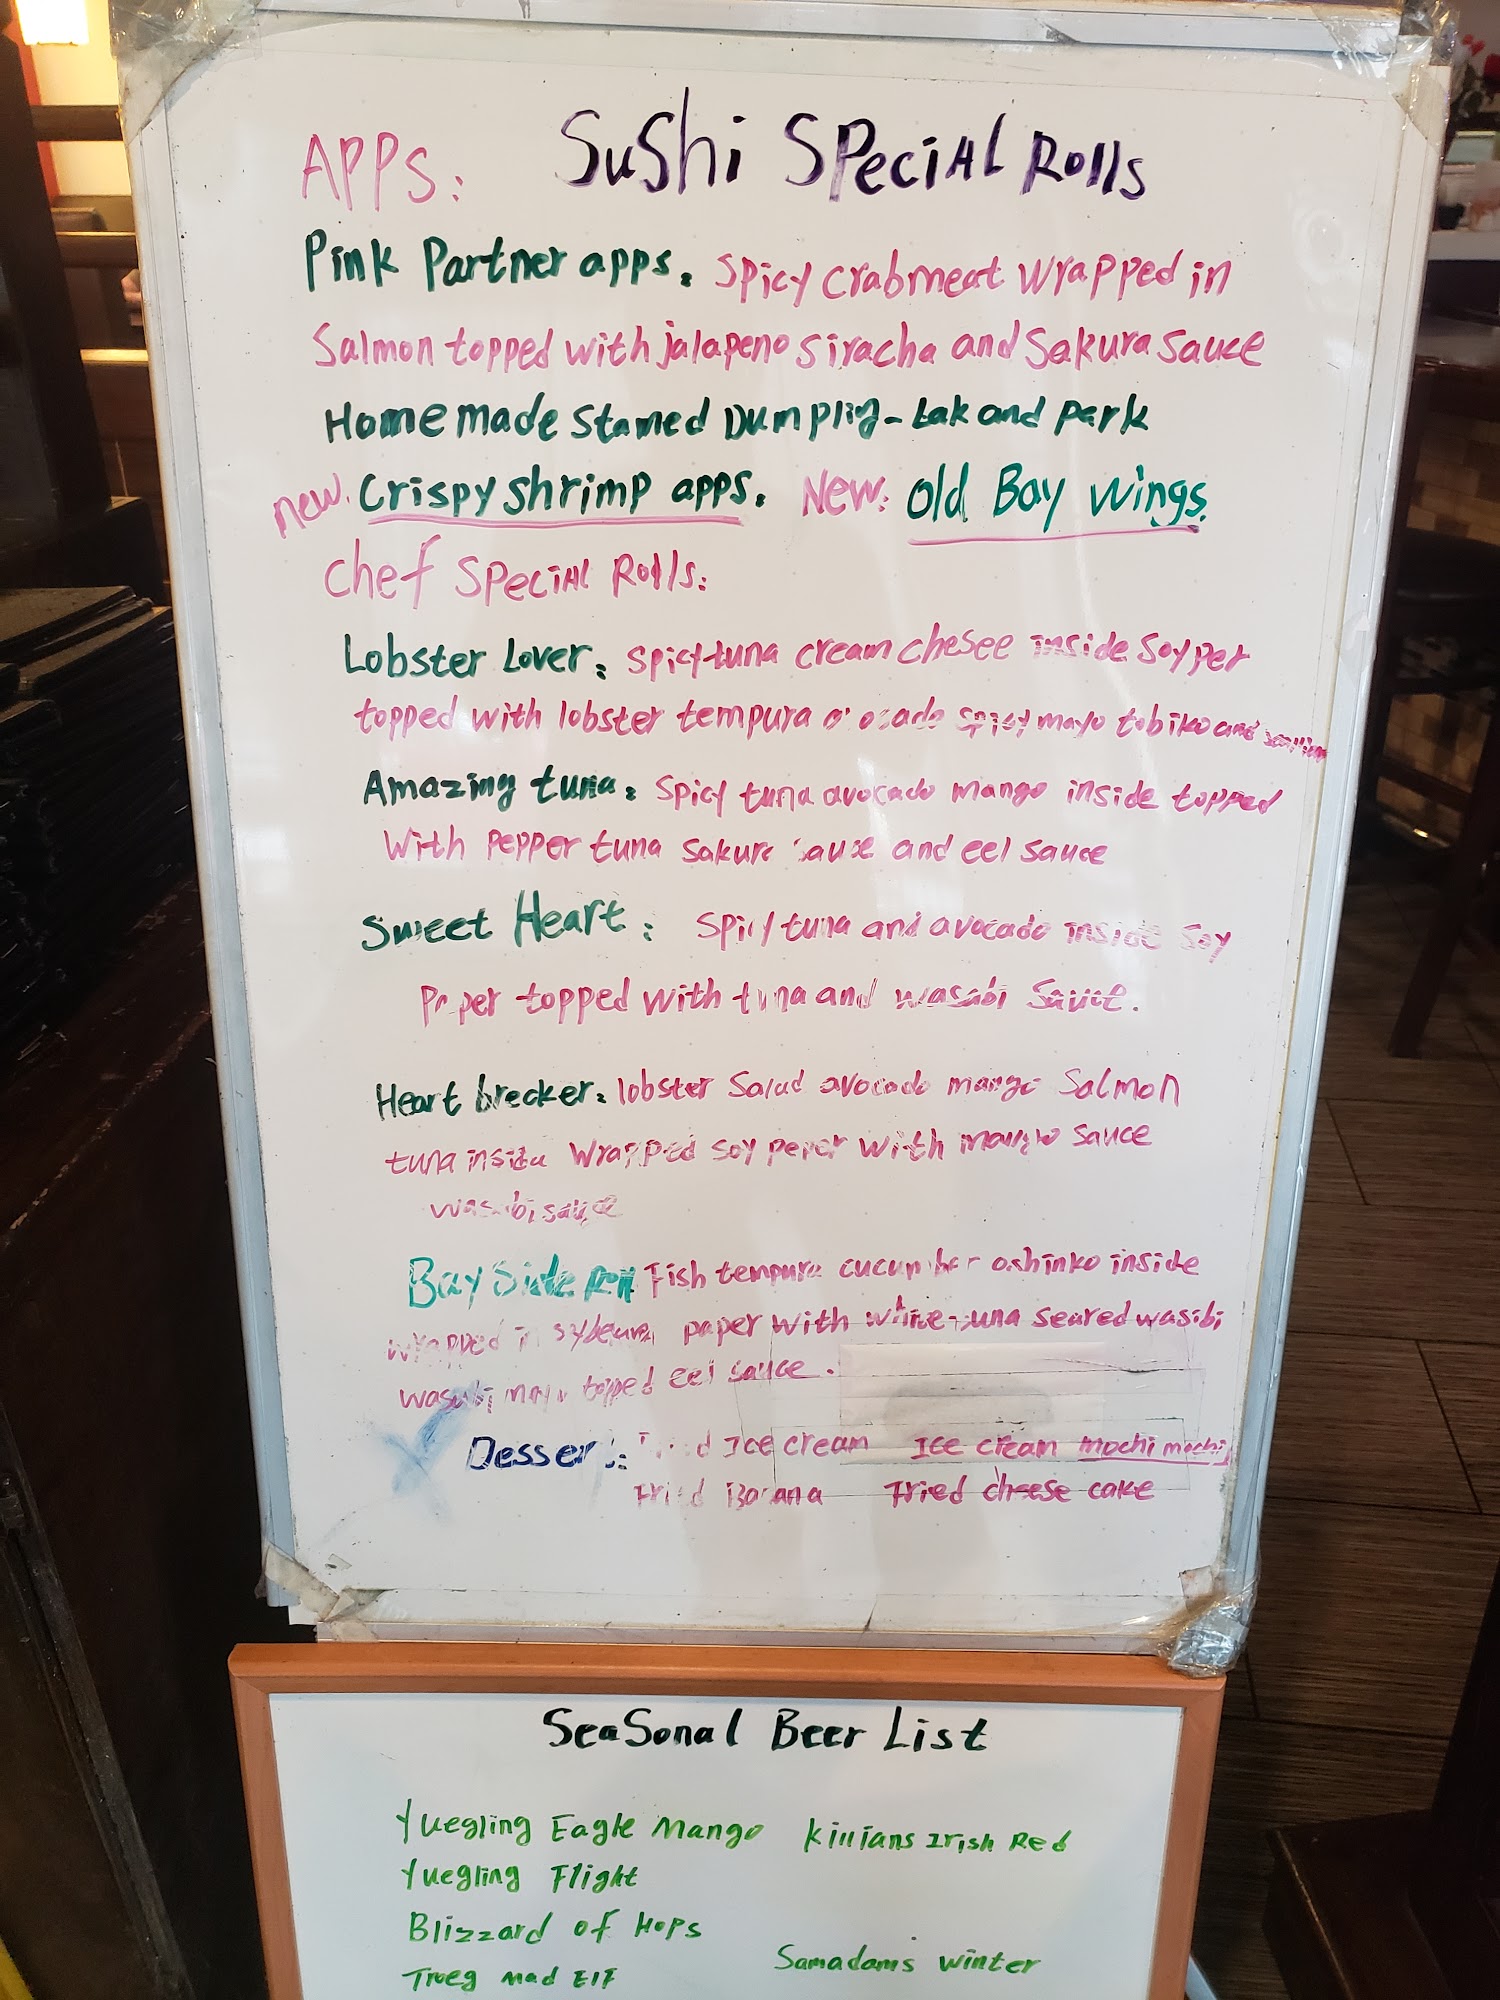 Sushi Special Rolls
APPS:
Pink Partner apps: Spicy crabmeat wrapped in
Salmon topped with jalapeno siracha and Sakura Sauce
Homemade Stamed Dumplig - Lak and Park
new. Crispy shrimp apps. New: Old Bay Wings.
Chef Special Rolls:
Lobster Lover: Spicy tuna cream chesee inside Soy per
topped with lobster tempura spicy mayo tobiko and
Amazing tuna: Spicy tuna avocado mango inside topped
With pepper tuna Sakura sauce and eel sauce
Sweet Heart: Spicy tuna and avocado inside Soy
Paper topped with tuna and wasabi Sauce.
Heart brecker: lobster Salad avocado mango Salmon
tuna inside Wrapped soy peper with mango sauce
wasabi sauce
Bay Side Roll Fish tempura cucumber oshinko inside
wrapped in paper with white tuna seared wasibi
wasabi mayo topped eel sauce.
Dessert: Fried Ice cream Ice cream mochi mochi
Fried Banana Fried cheese cake
Seasonal Beer List
Yuegling Eagle Mango Killians Irish Red
Yuegling Flight
Blizzard of Hops
Samadams winter
Troeg mad Elf